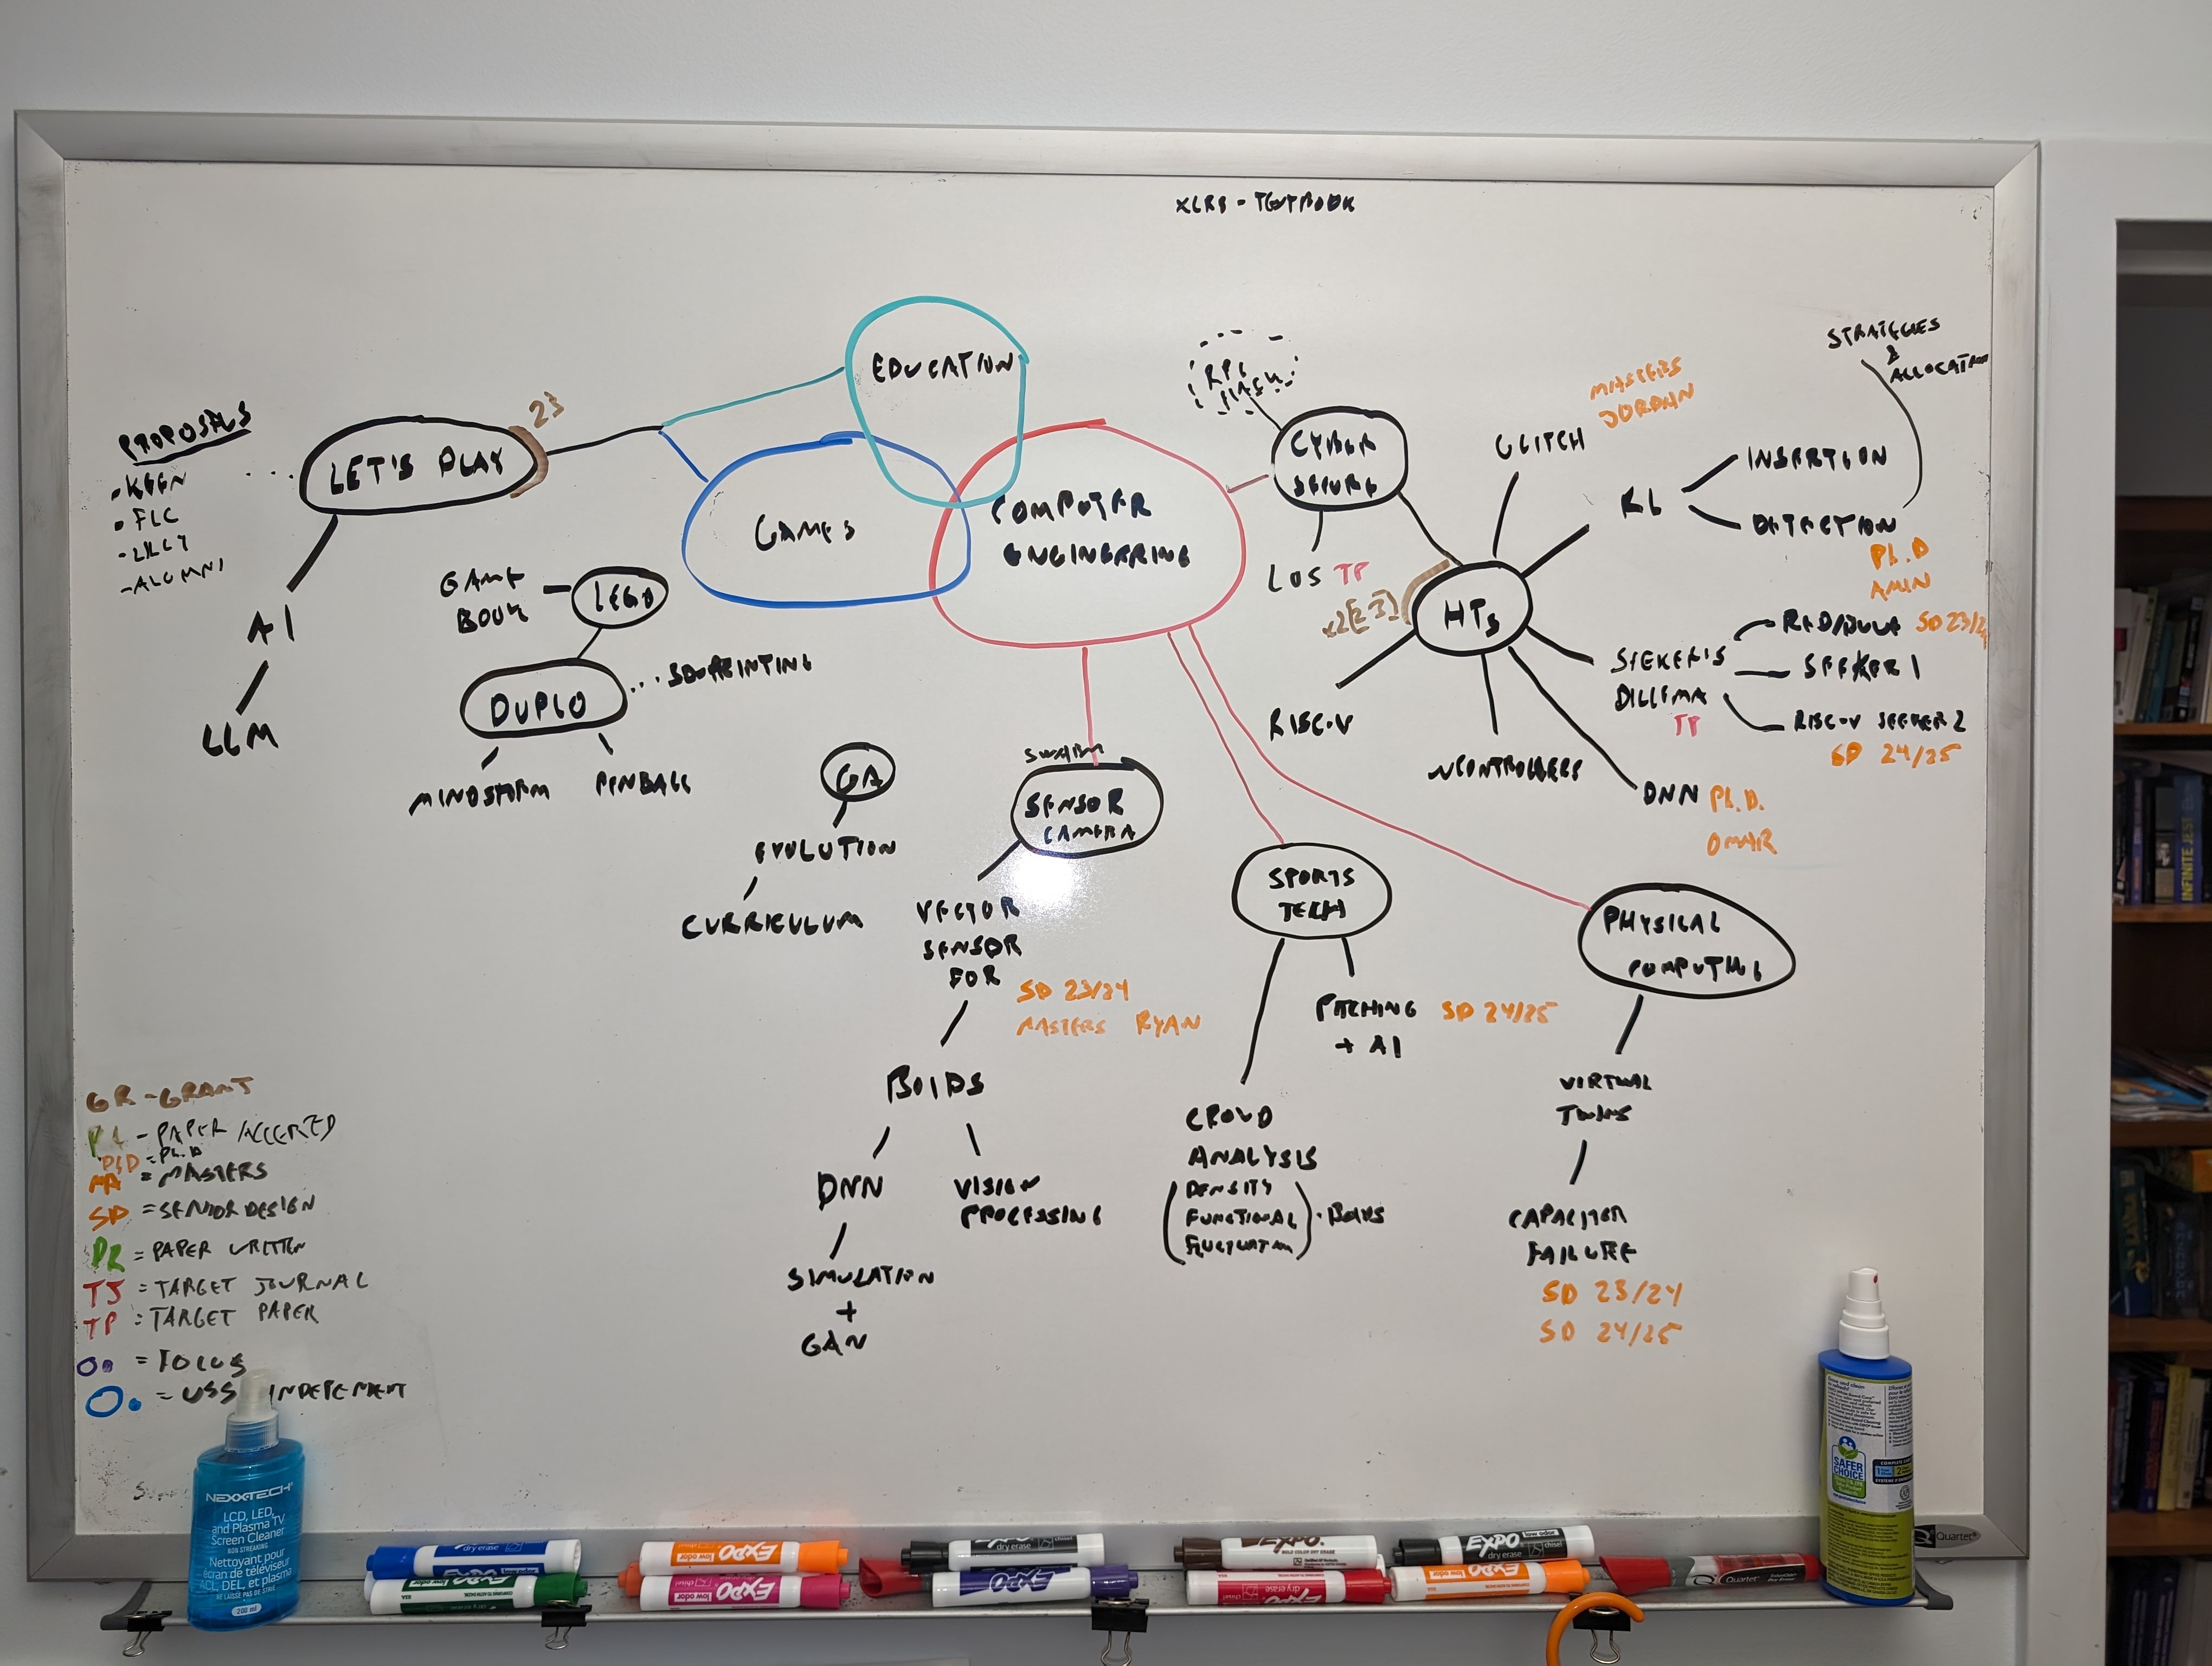 TEXTBOOK
EDUCATION
GAMES
COMPUTER
ENGINEERING
PROPOSALS
- KEEN
• FLC
- LILLY
- ALUMNI
LET'S PLAY
23
AI
LLM
GAME
BOOK
LEGO
DUPLO
MINDSTORM
PINBALL
GA
EVOLUTION
CURRICULUM
SWARM
SENSOR
CAMERA
VECTOR
SENSOR
FOR
SD 23/24
MASTERS RYAN
BOIDS
DNN
VISION
PROCESSING
SIMULATION
+
GAN
SPORTS
TECH
PITCHING
+ AI
SD 24/25
CROWD
ANALYSIS
DENSITY
FUNCTIONAL
FLUCTUATION
PHYSICAL
COMPUTING
VIRTUAL
TWINS
CAPACITOR
FAILURE
SD 23/24
SD 24/25
CYBER
SECURE
LOS TP
HTs
GLITCH
MASTERS
JORDAN
RL
INSERTION
DETECTION
STRATEGIES
&
ALLOCATION
Ph.D
AMIN
SEEKER'S
DILLEMA
TP
SD 23/24
SEEKER 1
RISC-V SEEKER 2
SD 24/25
RISC-V
DNN Ph.D.
OMAR
GR - GRANT
- PAPER ACCEPTED
PhD = Ph.D
MA = MASTERS
SD = SENIOR DESIGN
PR = PAPER WRITTEN
TJ = TARGET JOURNAL
TP = TARGET PAPER
= FOCUS
NEXXTECH
LCD, LED,
and Plasma TV
Screen Cleaner
NON STREAKING
Nettoyant pour
écran de téléviseur
ACL, DEL, et plasma
200 ml
EXPO
low odor
dry erase
chisel
Quartet
SAFER
CHOICE
INFINITE JEST